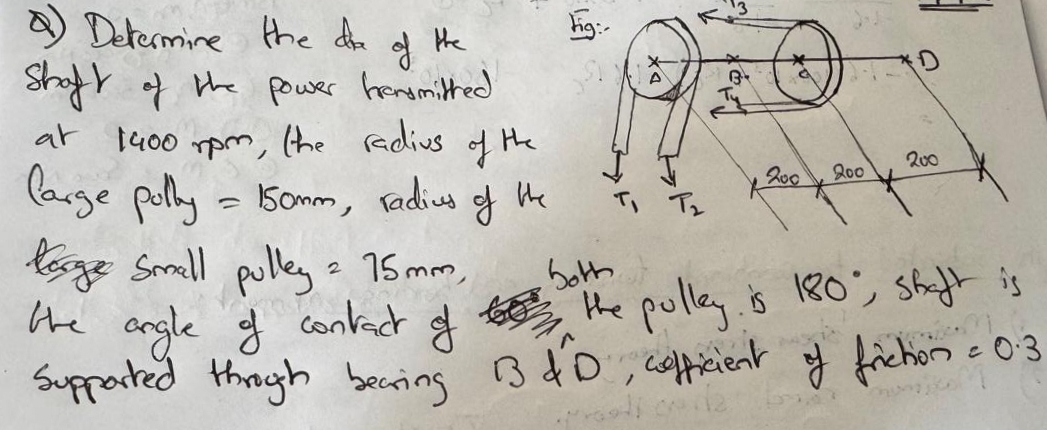 Q) Determine the dia of the
shaft of the power transmitted
at 1400 rpm, the radius of the
large pully = 150mm, radius of the
small pulley = 75mm,
the angle of contact of both the pulley is 180°, shaft is
supported through bearing B & D, cofficient of friction = 0.3
Fig:-
T3
A B C D
T4
T1 T2
200 200 200